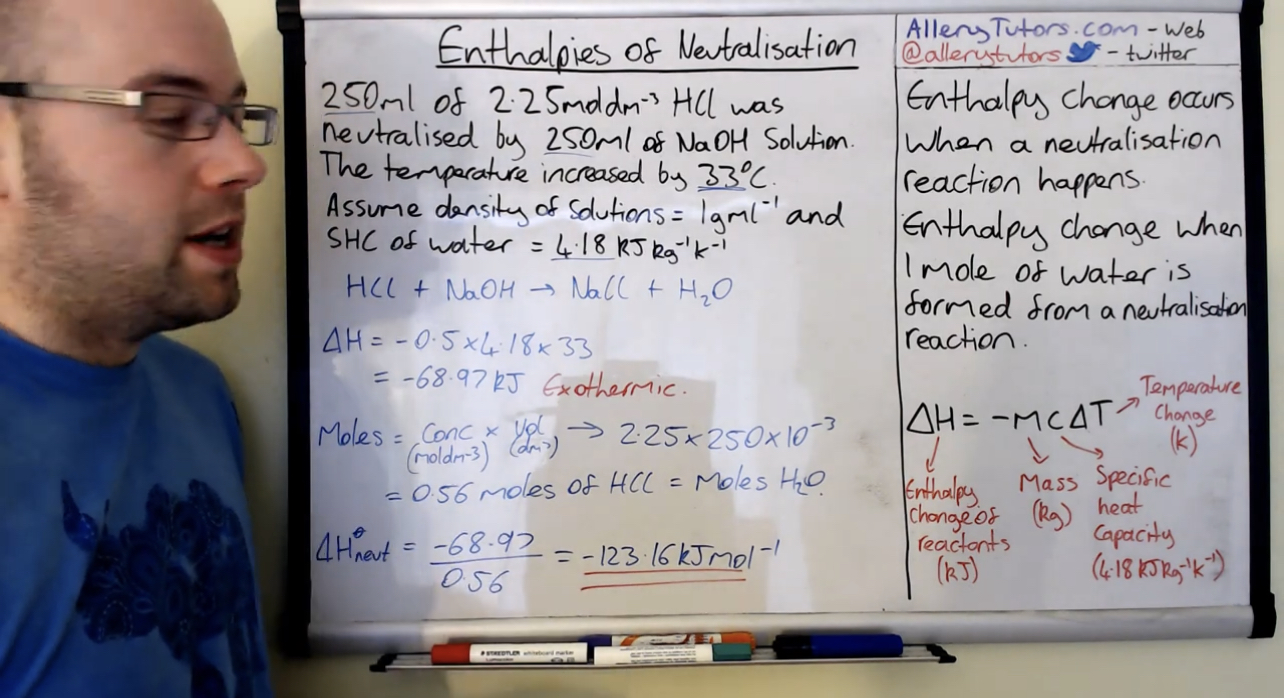 Enthalpies of Neutralisation
250ml of 2.25moldm⁻³ HCl was
neutralised by 250ml of NaOH Solution.
The temperature increased by 33°C.
Assume density of solutions = 1gml⁻¹ and
SHC of water = 4.18 KJ Kg⁻¹K⁻¹
HCl + NaOH → NaCl + H₂O
ΔH = -0.5×4.18×33
= -68.97KJ Exothermic.
Moles = Conc × Vol → 2.25×250×10⁻³
(moldm⁻³) (dm³)
= 0.56 moles of HCl = Moles H₂O.
ΔH°neut = -68.97 = -123.16KJmol⁻¹
0.56
AlleryTutors.com - Web
@allerytutors - twitter
Enthalpy Change occurs
When a neutralisation
reaction happens.
Enthalpy change when
1 mole of water is
formed from a neutralisation
reaction.
ΔH = -MCΔT
Temperature
Change
(K)
Enthalpy
Change of
reactants
(KJ)
Mass
(Kg)
Specific
heat
Capacity
(4.18 KJKg⁻¹K⁻¹)
STAEDTLER whiteboard marker